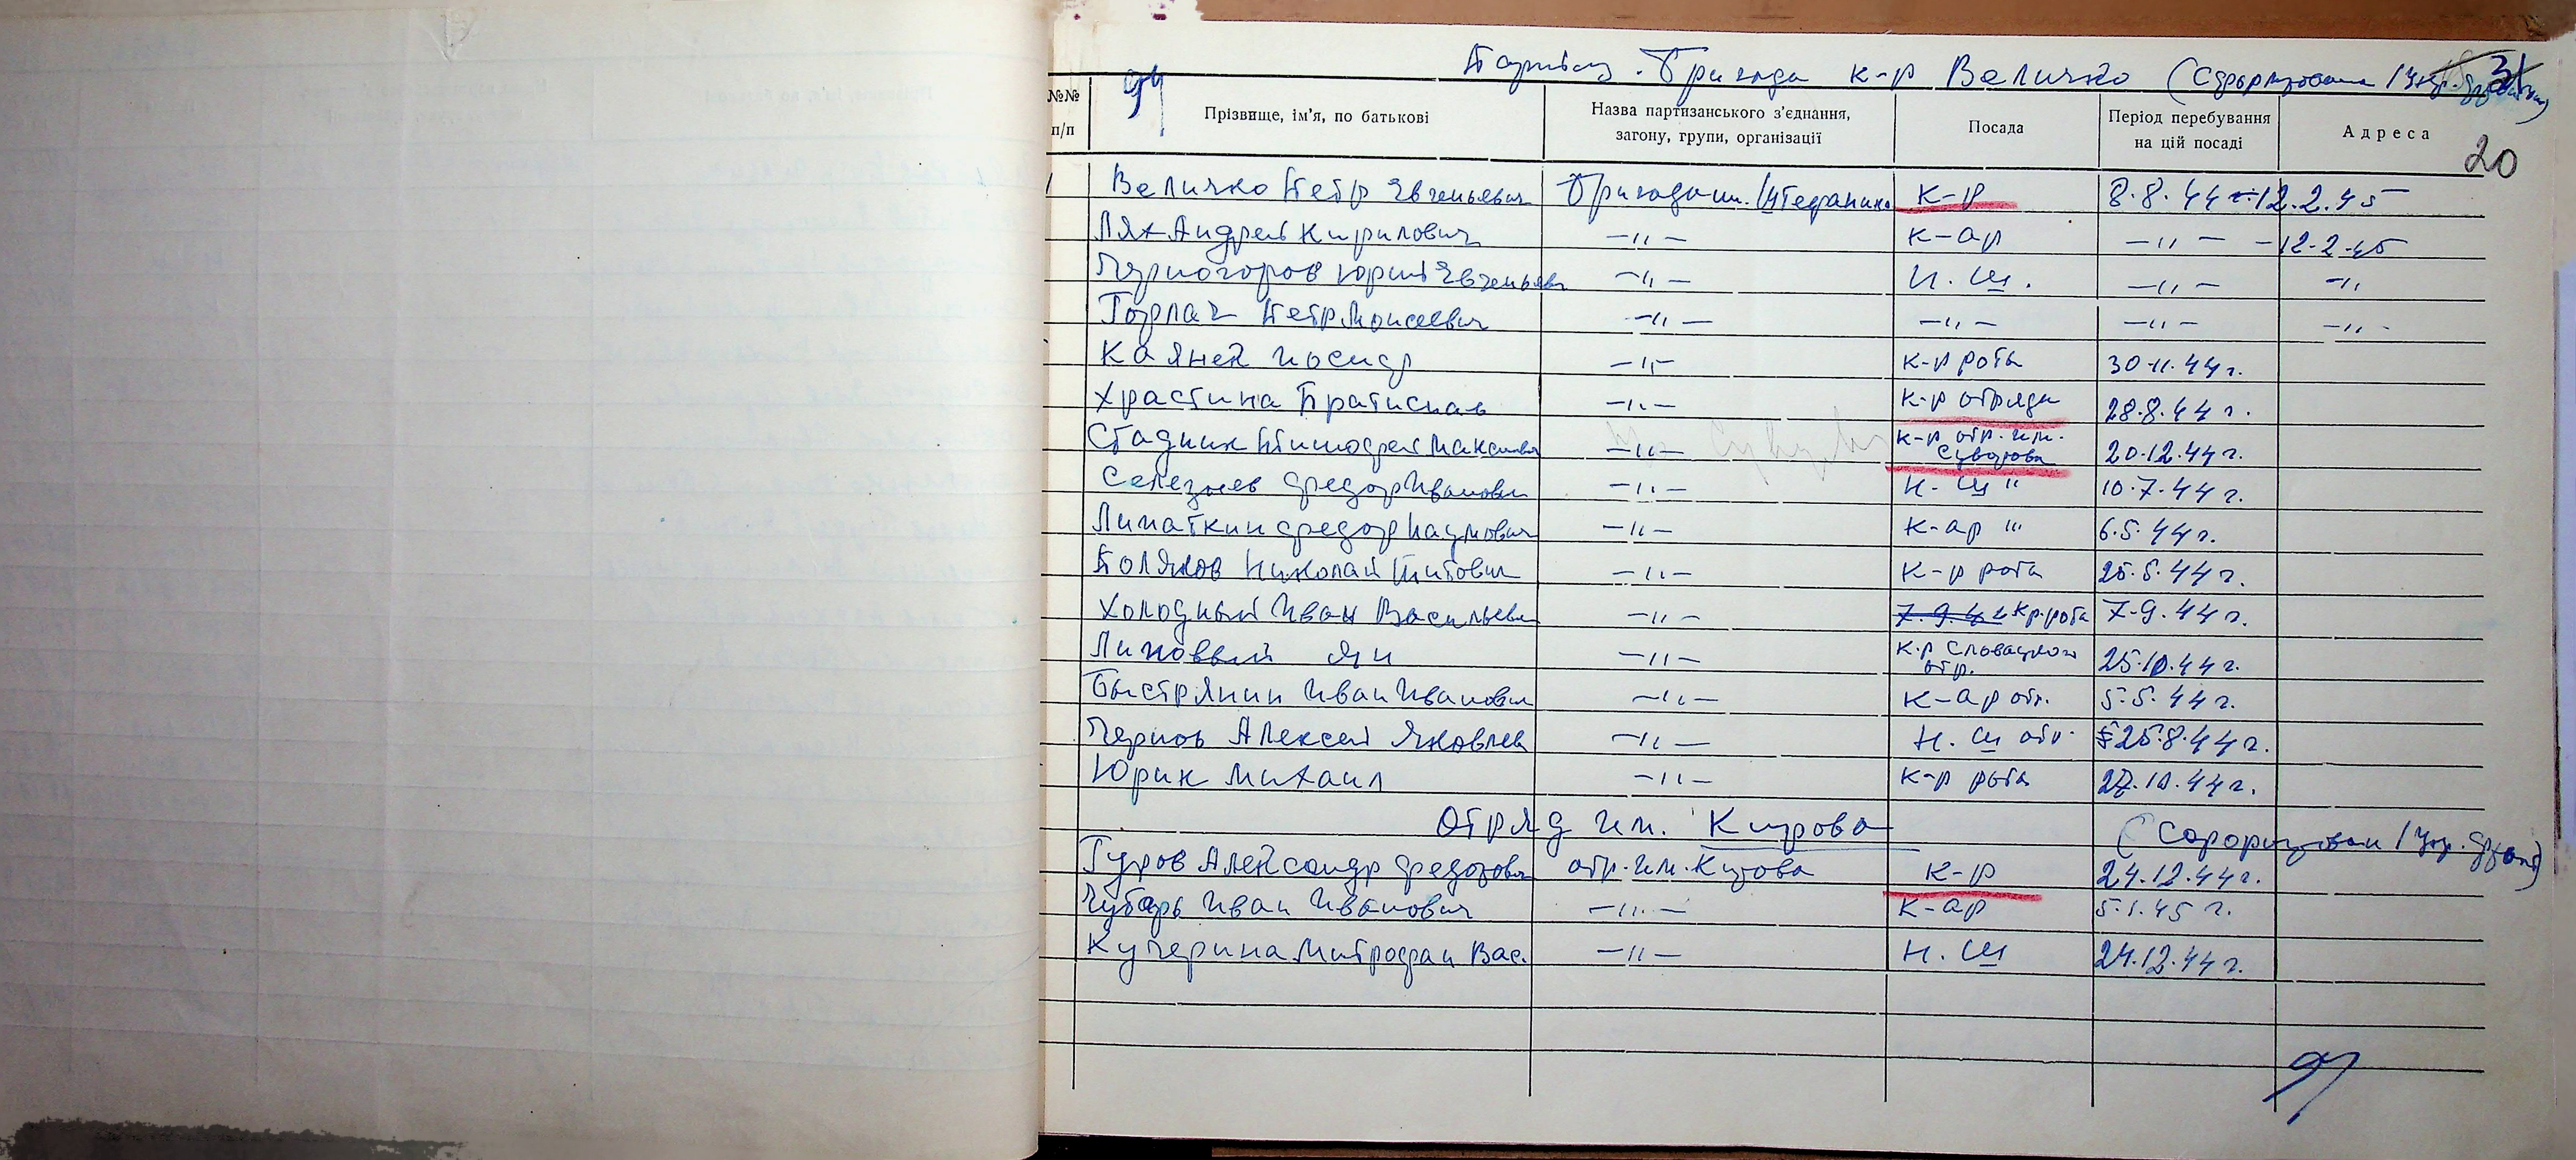 Бригада к-р Величко (Сформирована 1 Укр. фронтом)
31
20
94
№№ п/п
Прізвище, ім'я, по батькові
Назва партизанського з'єднання, загону, групи, організації
Посада
Період перебування на цій посаді
Адреса
1 Величко Петр Евгеньевич Бригада им. Штефаника к-р 8.8.44 - 12.2.45
Лях Андрей Кирилович —"— к-ар —"— -12.2.45
Черногоров Юрий Евгеньев —"— Н.Ш. —"— —"
Горлач Петр Моисеевич —"— —"— —"— —"—
Каяней Иосиф —"— к-р рота 30.11.44 г.
Храстина Братислав —"— к-р отряда 28.8.44 г.
Стадник Тимофей Максимович —"— к-р отр. им. Суворова 20.12.44 г.
Селезнев Федор Иванович —"— Н.Ш " 10.7.44 г.
Липаткин Федор Наумович —"— к-ар " 6.5.44 г.
Поляков Николай Титович —"— к-р рота 25.5.44 г.
Холодный Иван Васильевич —"— 7.9.44 к-р рота 7.9.44 г.
Липовый Ян —"— к-р Словацкого отр. 25.10.44 г.
Быстрянин Иван Иванович —"— к-ар от. 5.5.44 г.
Чернов Алексей Яковлев —"— Н.Ш отр. 25.8.44 г.
Юрик Михаил —"— к-р рота 27.10.44 г.
Отряд им. Кирова (Сформирован 1 Укр. фронт)
Гуров Александр Федорович отр. им. Кирова к-р 24.12.44 г.
Чубарь Иван Иванович —"— к-ар 5.1.45 г.
Кучерина Митрофан Вас. —"— Н.Ш 24.12.44 г.